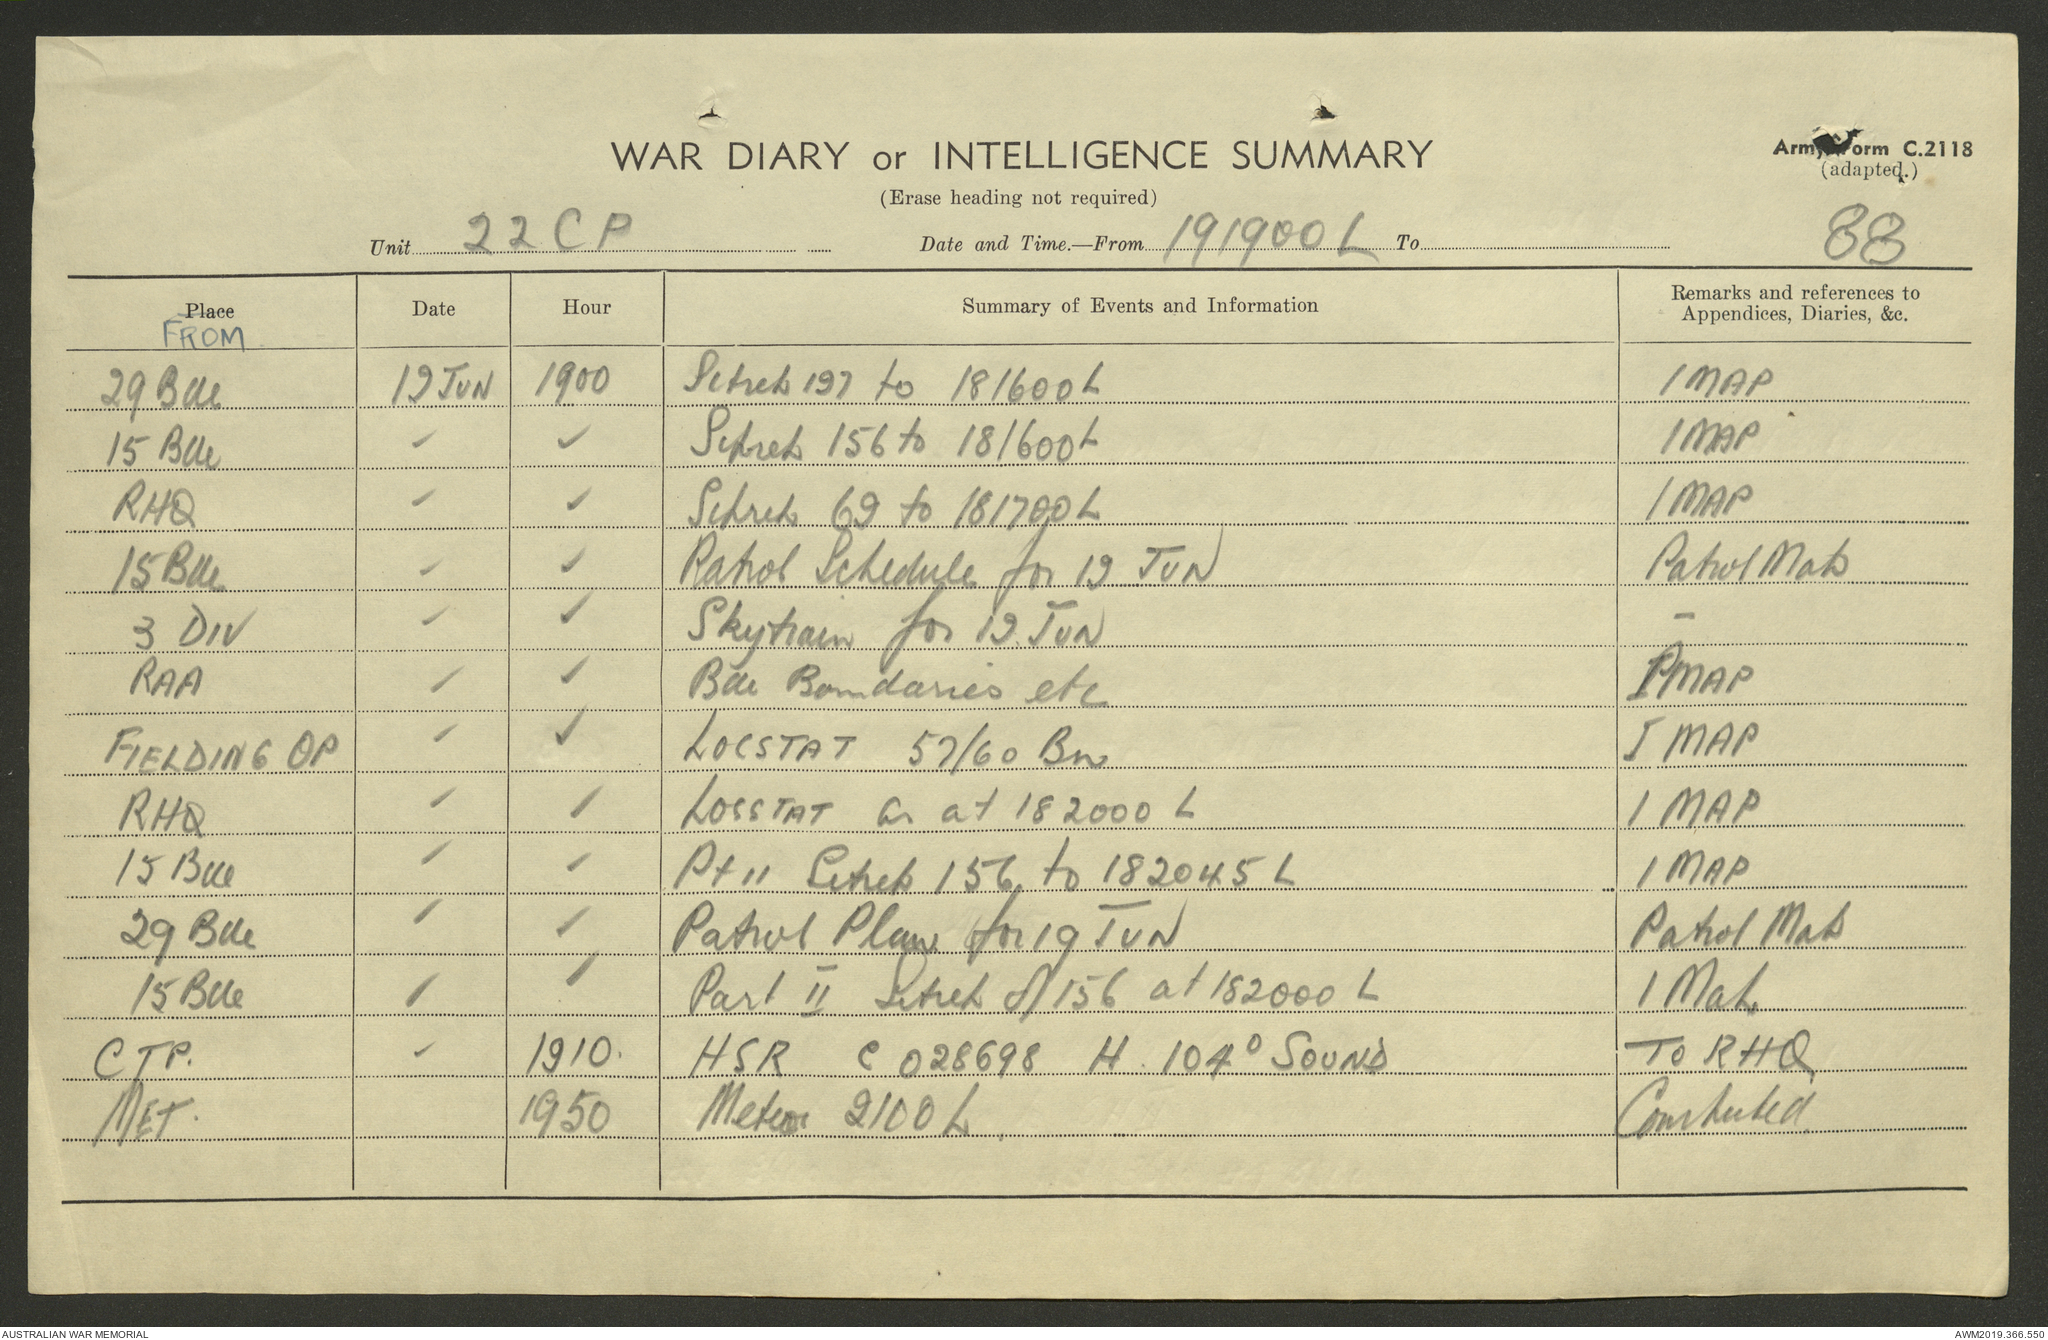 WAR DIARY or INTELLIGENCE SUMMARY
Army Form C.2118
(adapted.)
(Erase heading not required)
Unit 22 CP Date and Time.—From 191900 L To
88
Place Date Hour Summary of Events and Information Remarks and references to
Appendices, Diaries, &c.
FROM
29 Bde 19 JUN 1900 Sitrep 197 to 181600 L 1 MAP
15 Bde ✓ ✓ Sitrep 156 to 181600 L 1 MAP
RHQ ✓ ✓ Sitrep 69 to 181700 L 1 MAP
15 Bde ✓ ✓ Patrol Schedule for 19 JUN Patrol Map
3 DIV ✓ ✓ Skytrain for 19 JUN –
RAA ✓ ✓ Bde Boundaries etc MAP
FIELDING OP ✓ ✓ LOCSTAT 57/60 Bn I MAP
RHQ ✓ ✓ LOCSTAT as at 182000 L 1 MAP
15 Bde ✓ ✓ Pt 11 Sitrep 156 to 182045 L 1 MAP
29 Bde ✓ ✓ Patrol Plan for 19 JUN Patrol Map
15 Bde ✓ ✓ Part II Sitrep of 156 at 182000 L 1 Map
C TP. ✓ 1910. HSR C 028698 H. 104° SOUND TO RHQ
MET. 1950 Meteor 2100 L. Computed.
AUSTRALIAN WAR MEMORIAL
AWM2019.366.550